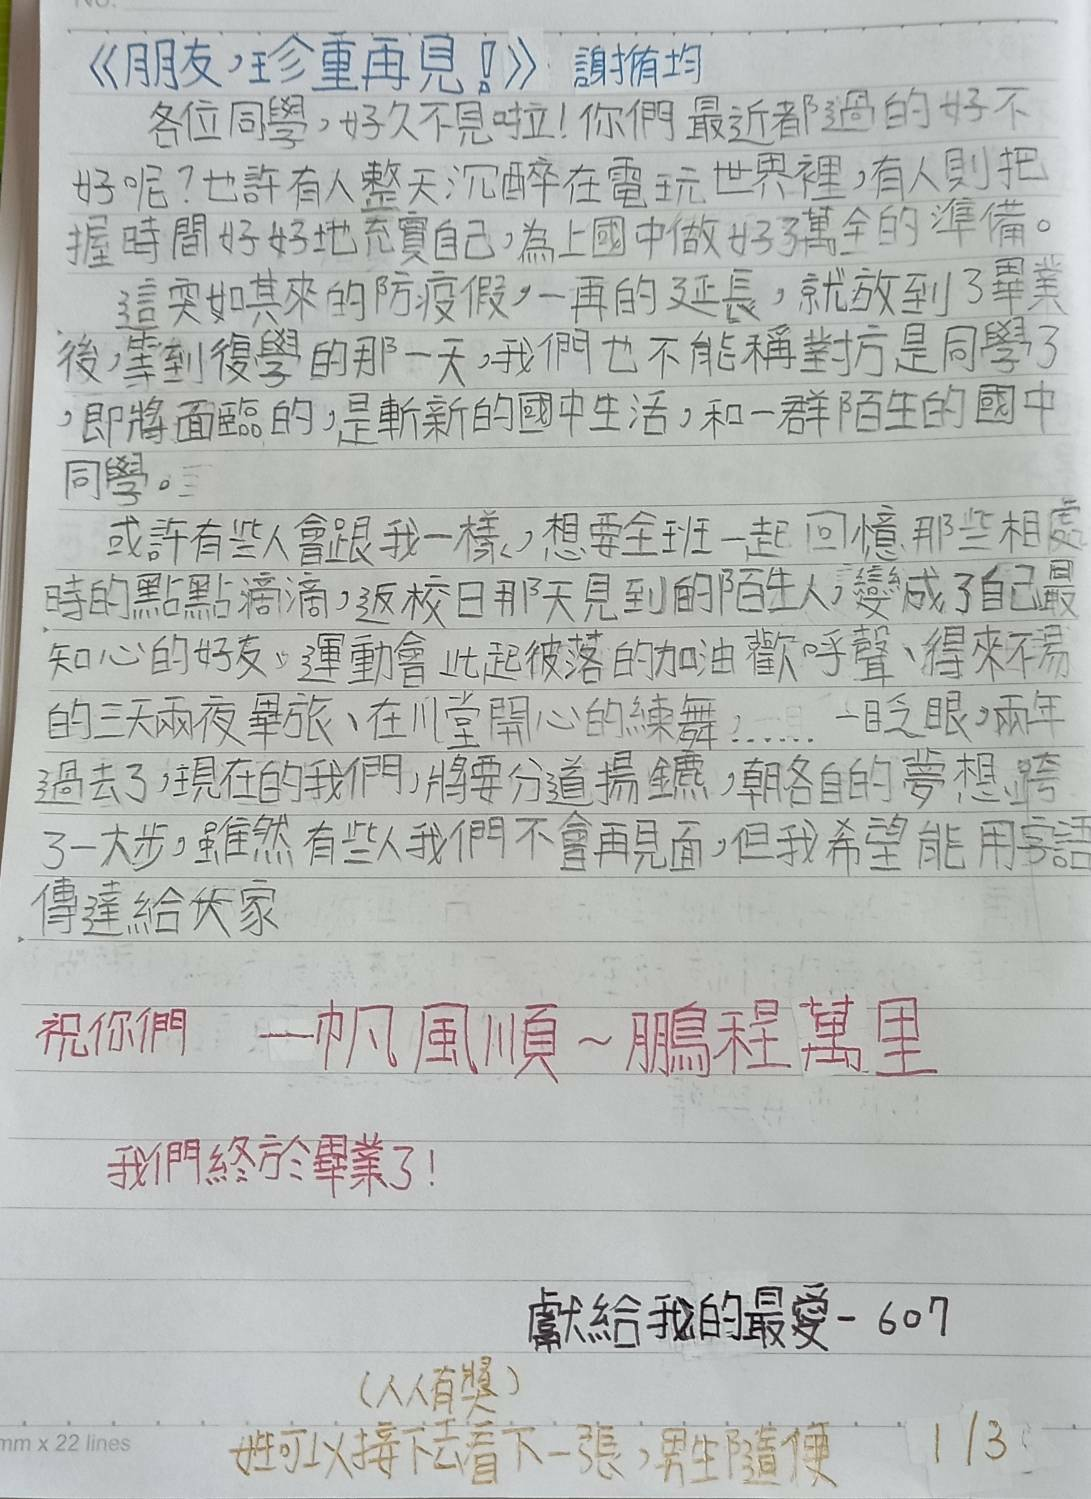 No.
《朋友，珍重再見！》 謝侑均
各位同學，好久不見啦！你們最近都過的好不
好呢？也許有人整天沉醉在電玩世界裡，有人則把
握時間好好地充實自己，為上國中做好了萬全的準備。
這突如其來的防疫假，一再的延長，就放到了畢業
後，等到復學的那一天，我們也不能稱對方是同學了
，即將面臨的，是斬新的國中生活，和一群陌生的國中
同學。
或許有些人會跟我一樣，想要全班一起回憶那些相處
時的點點滴滴，返校日那天見到的陌生人，變成了自己最
知心的好友、運動會此起彼落的加油歡呼聲、得來不易
的三天兩夜畢旅、在川堂開心的練舞，...... 一眨眼，兩年
過去了，現在的我們，將要分道揚鑣，朝各自的夢想跨
了一大步，雖然有些人我們不會再見面，但我希望能用字語
傳達給大家
祝你們 一帆風順～鵬程萬里
我們終於畢業了！
獻給我的最愛－607
（人人有獎）
女生可以接下去看下一張，男生隨便 1/3
mm x 22 lines